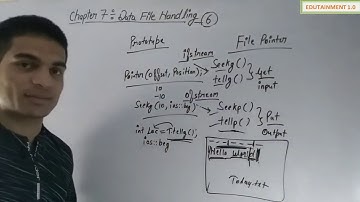 EDUTAINMENT 1.0
Chapter 7 :- Data File Handling 6
Prototype File Pointer
ifstream
Pointer(Offset, Position); Seekg() } Get
10 tellg() } input
-10 ofstream
Seekg(10, ios::beg); Seekp() } Put
int Loc = T.tellg(); tellp() } Output
ios::beg
Hello
Today.txt